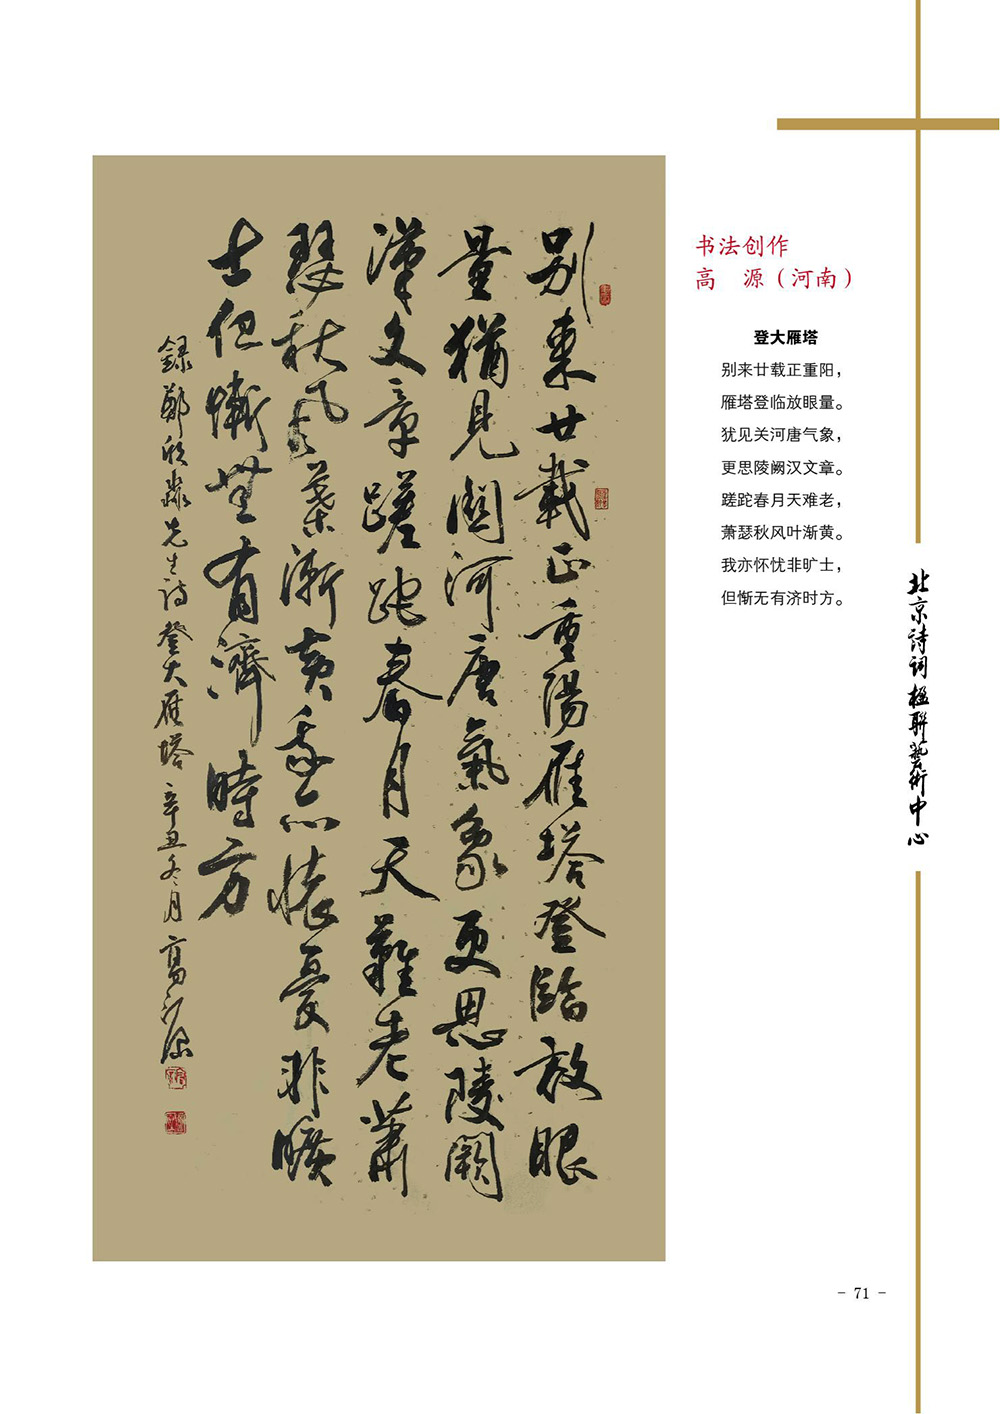 书法创作
高 源（河南）
登大雁塔
别来廿载正重阳，
雁塔登临放眼量。
犹见关河唐气象，
更思陵阙汉文章。
蹉跎春月天难老，
萧瑟秋风叶渐黄。
我亦怀忧非旷士，
但惭无有济时方。
别來廿載正重陽雁塔登臨放眼
量猶見關河唐氣象更思陵闕
漢文章蹉跎春月天難老蕭
瑟秋風葉漸黄我亦懷憂非曠
士但慚無有濟時方
録鄭欣淼先生詩登大雁塔 辛丑冬月 高源
北京诗词楹聯藝術中心
- 71 -